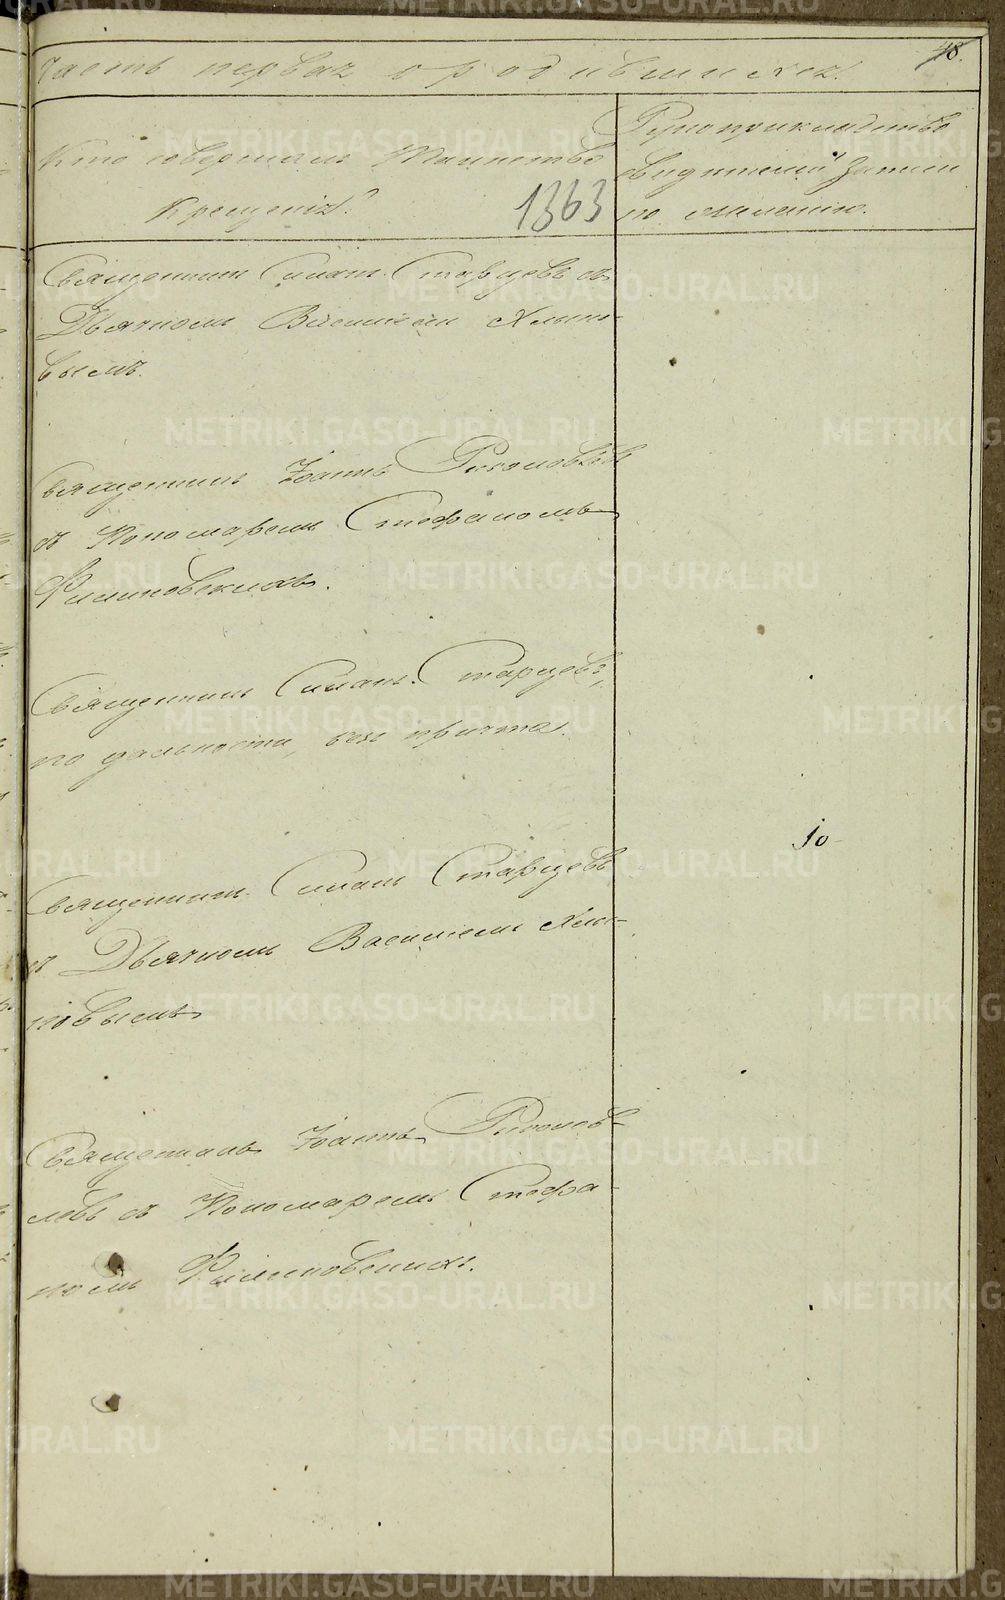 18.
Часть первая о родившихся.
Кто совершалъ Таинство
Крещенія?
1363
Рукоприкладство
свидѣтелей записи
по желанію.
Священникъ Симонъ Старцевъ съ
Дьячкомъ Василіемъ Хлыно-
вымъ.
Священникъ Іоаннъ
съ Пономаремъ Стефаномъ
Филиповскихъ.
Священникъ Симонъ Старцевъ,
по дальности, безъ причта.
10
Священникъ Симонъ Старцевъ
съ Дьячкомъ Василіемъ Хлы-
новымъ
Священникъ Іоаннъ
съ Пономаремъ Стефа-
номъ Филиповскихъ.
METRIKI.GASO-URAL.RU